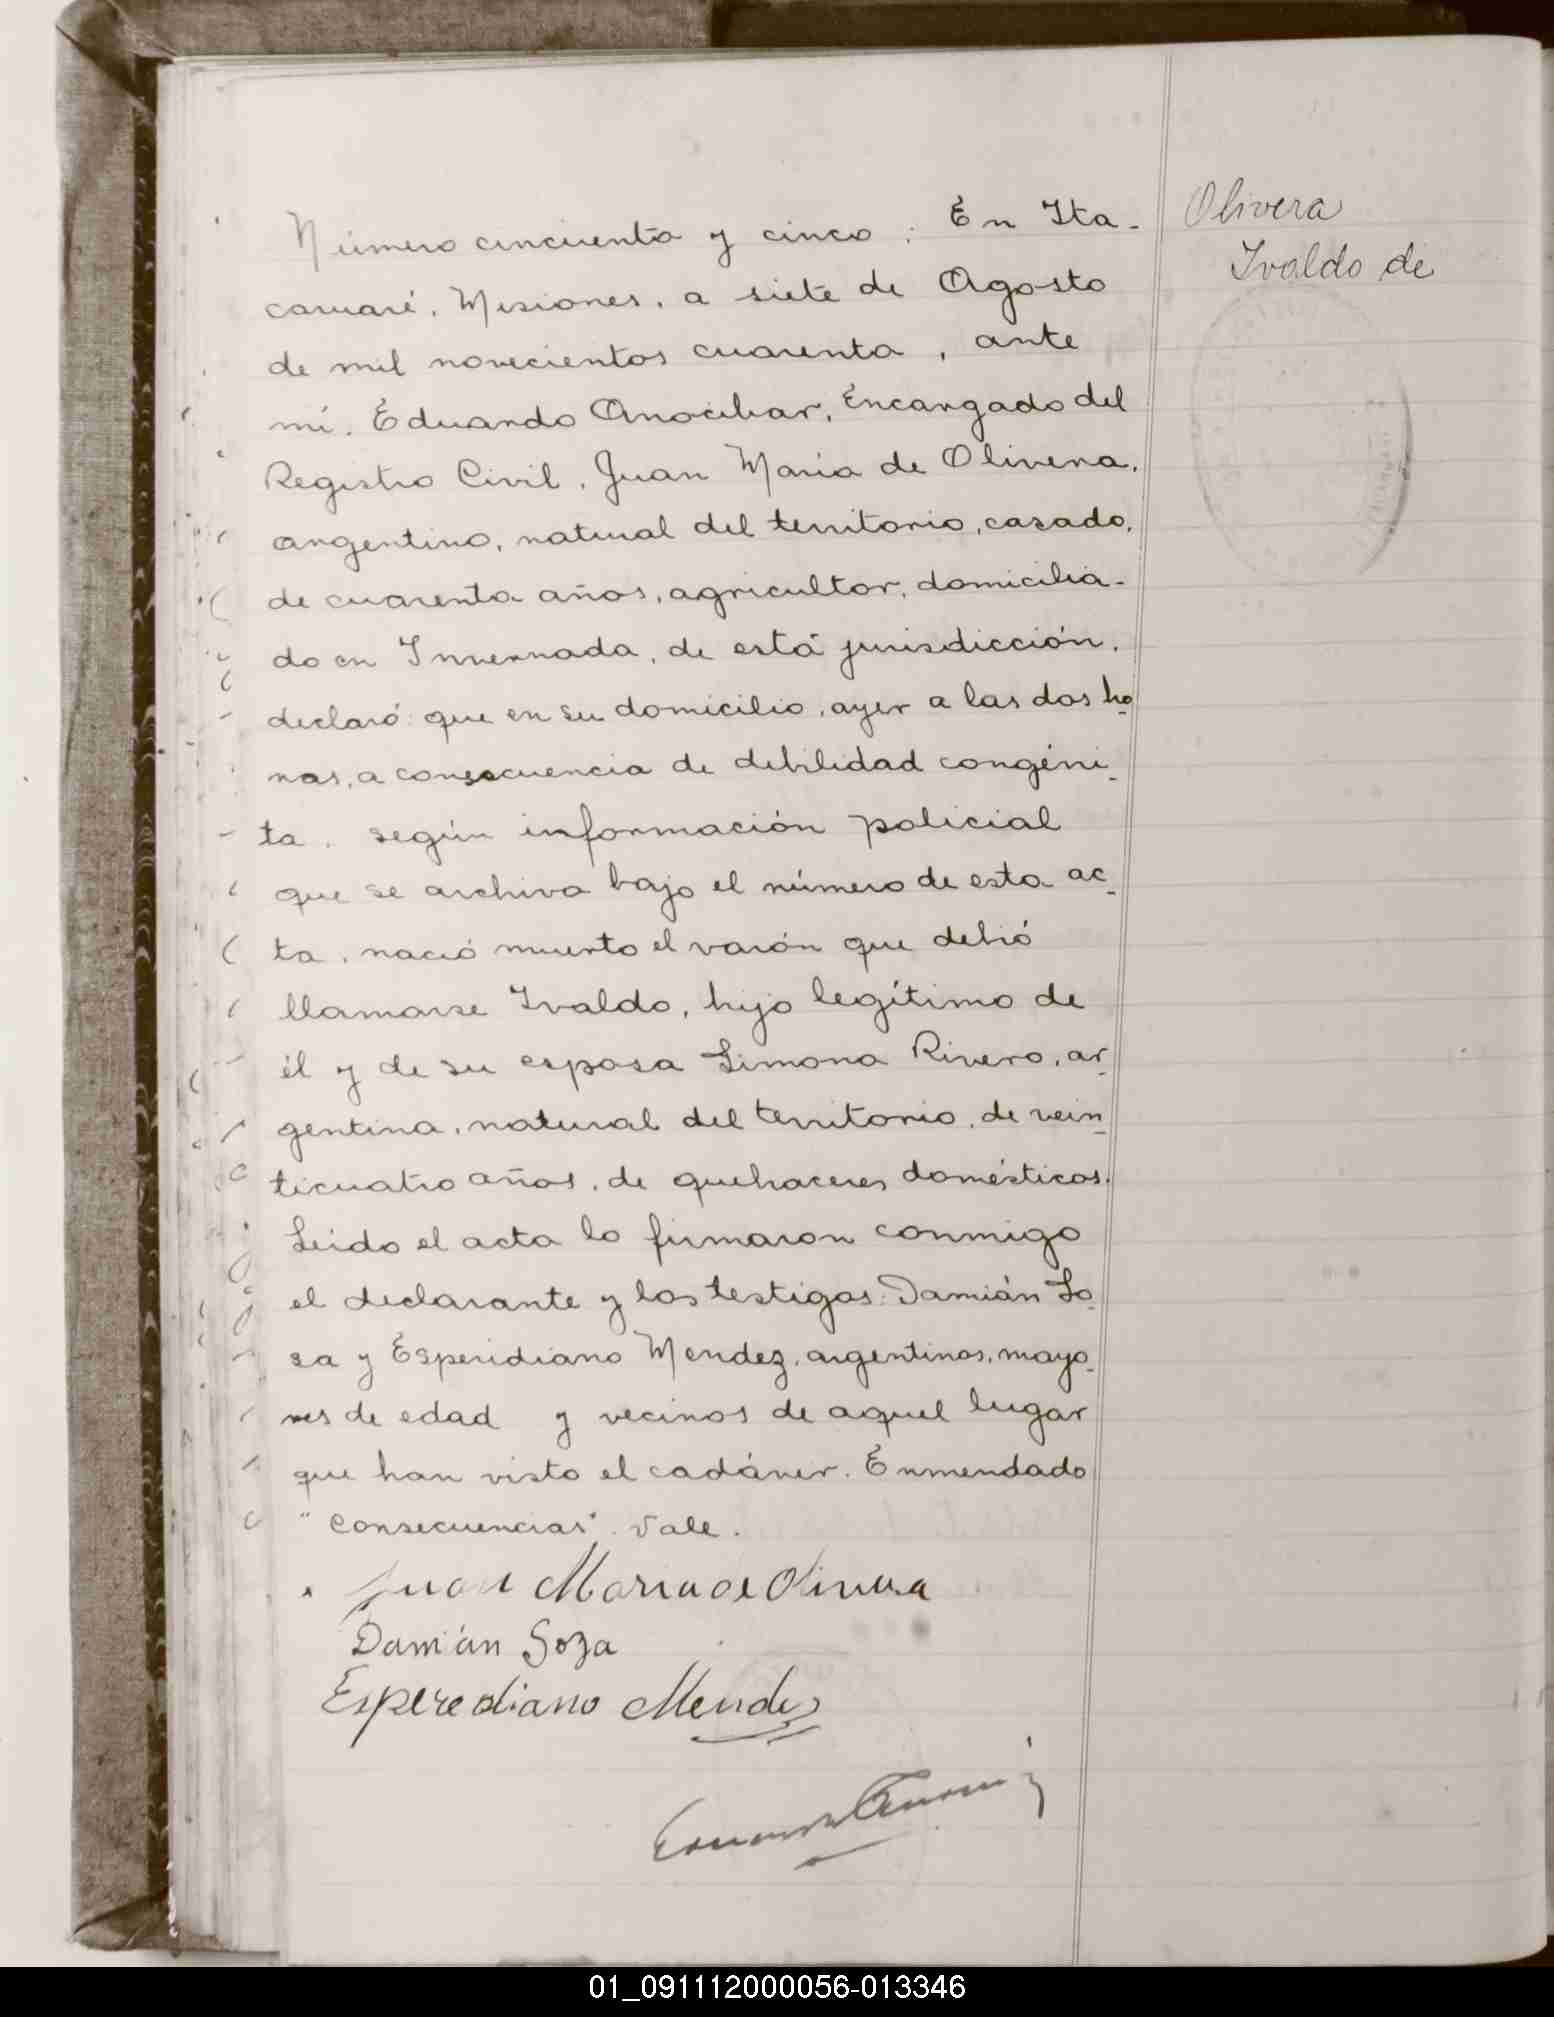 Olivera
Ivaldo de
Número cincuenta y cinco: En Ita-
caruaré, Misiones, a siete de Agosto
de mil novecientos cuarenta, ante
mí, Eduardo Anocibar, Encargado del
Registro Civil, Juan María de Olivera,
argentino, natural del territorio, casado,
de cuarenta años, agricultor, domicilia-
do en Invernada, de está jurisdicción,
declaró: que en su domicilio, ayer a las dos ho
ras, a consecuencia de debilidad congéni-
ta, según información policial
que se archiva bajo el número de esta ac-
ta, nació muerto el varón que debió
llamarse Ivaldo, hijo legítimo de
él y de su esposa Simona Rivero, ar
gentina, natural del territorio, de vein
ticuatro años, de quehaceres domésticos.
Leido el acta lo firmaron conmigo
el declarante y los testigos: Damián So
sa y Esperidiano Mendez, argentinos, mayo
res de edad y vecinos de aquel lugar
que han visto el cadáver. Enmendado
"consecuencias". Vale.
Juan Maria de Olivera
Damián Soza
Esperediano Mendez
01_091112000056-013346